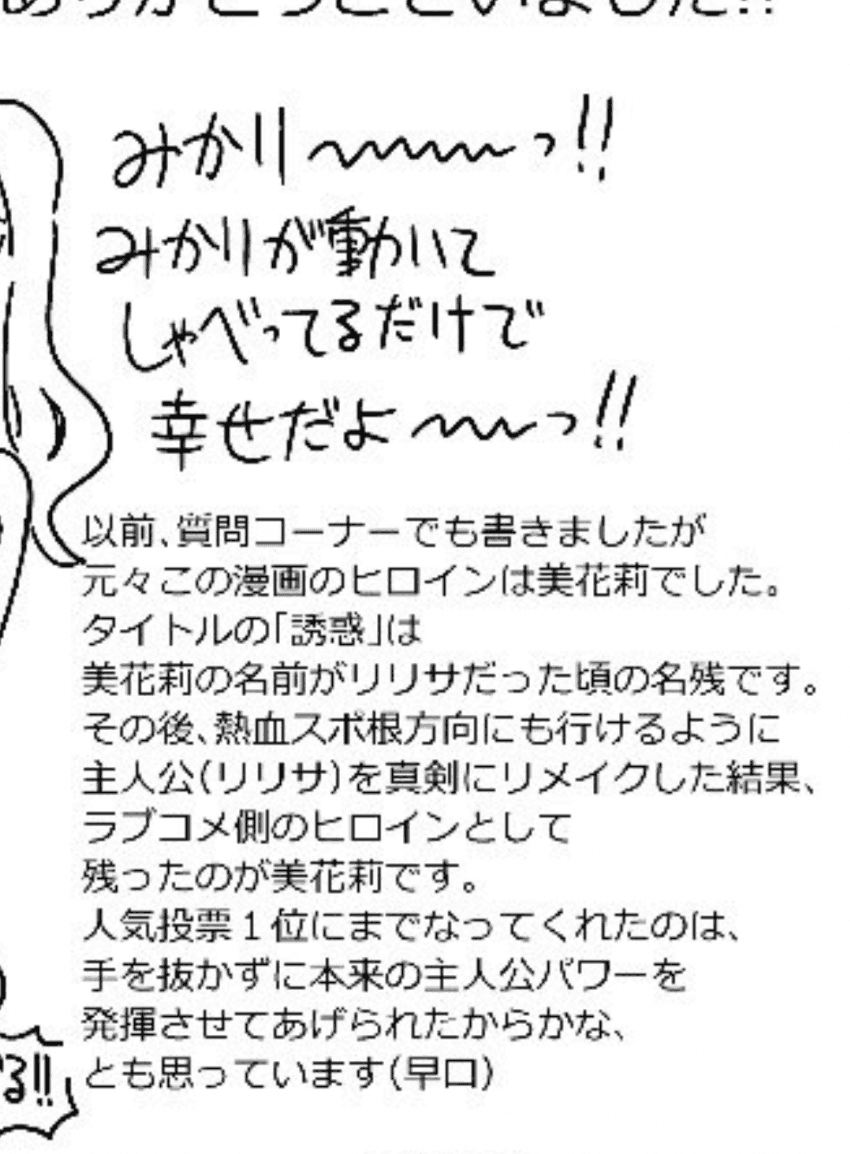 ありがとうございました!!
みかり〜〜〜っ!!
みかりが動いて
しゃべってるだけで
幸せだよ〜〜っ!!
以前、質問コーナーでも書きましたが
元々この漫画のヒロインは美花莉でした。
タイトルの「誘惑」は
美花莉の名前がリリサだった頃の名残です。
その後、熱血スポ根方向にも行けるように
主人公(リリサ)を真剣にリメイクした結果、
ラブコメ側のヒロインとして
残ったのが美花莉です。
人気投票1位にまでなってくれたのは、
手を抜かずに本来の主人公パワーを
発揮させてあげられたからかな、
とも思っています(早口)
る!!